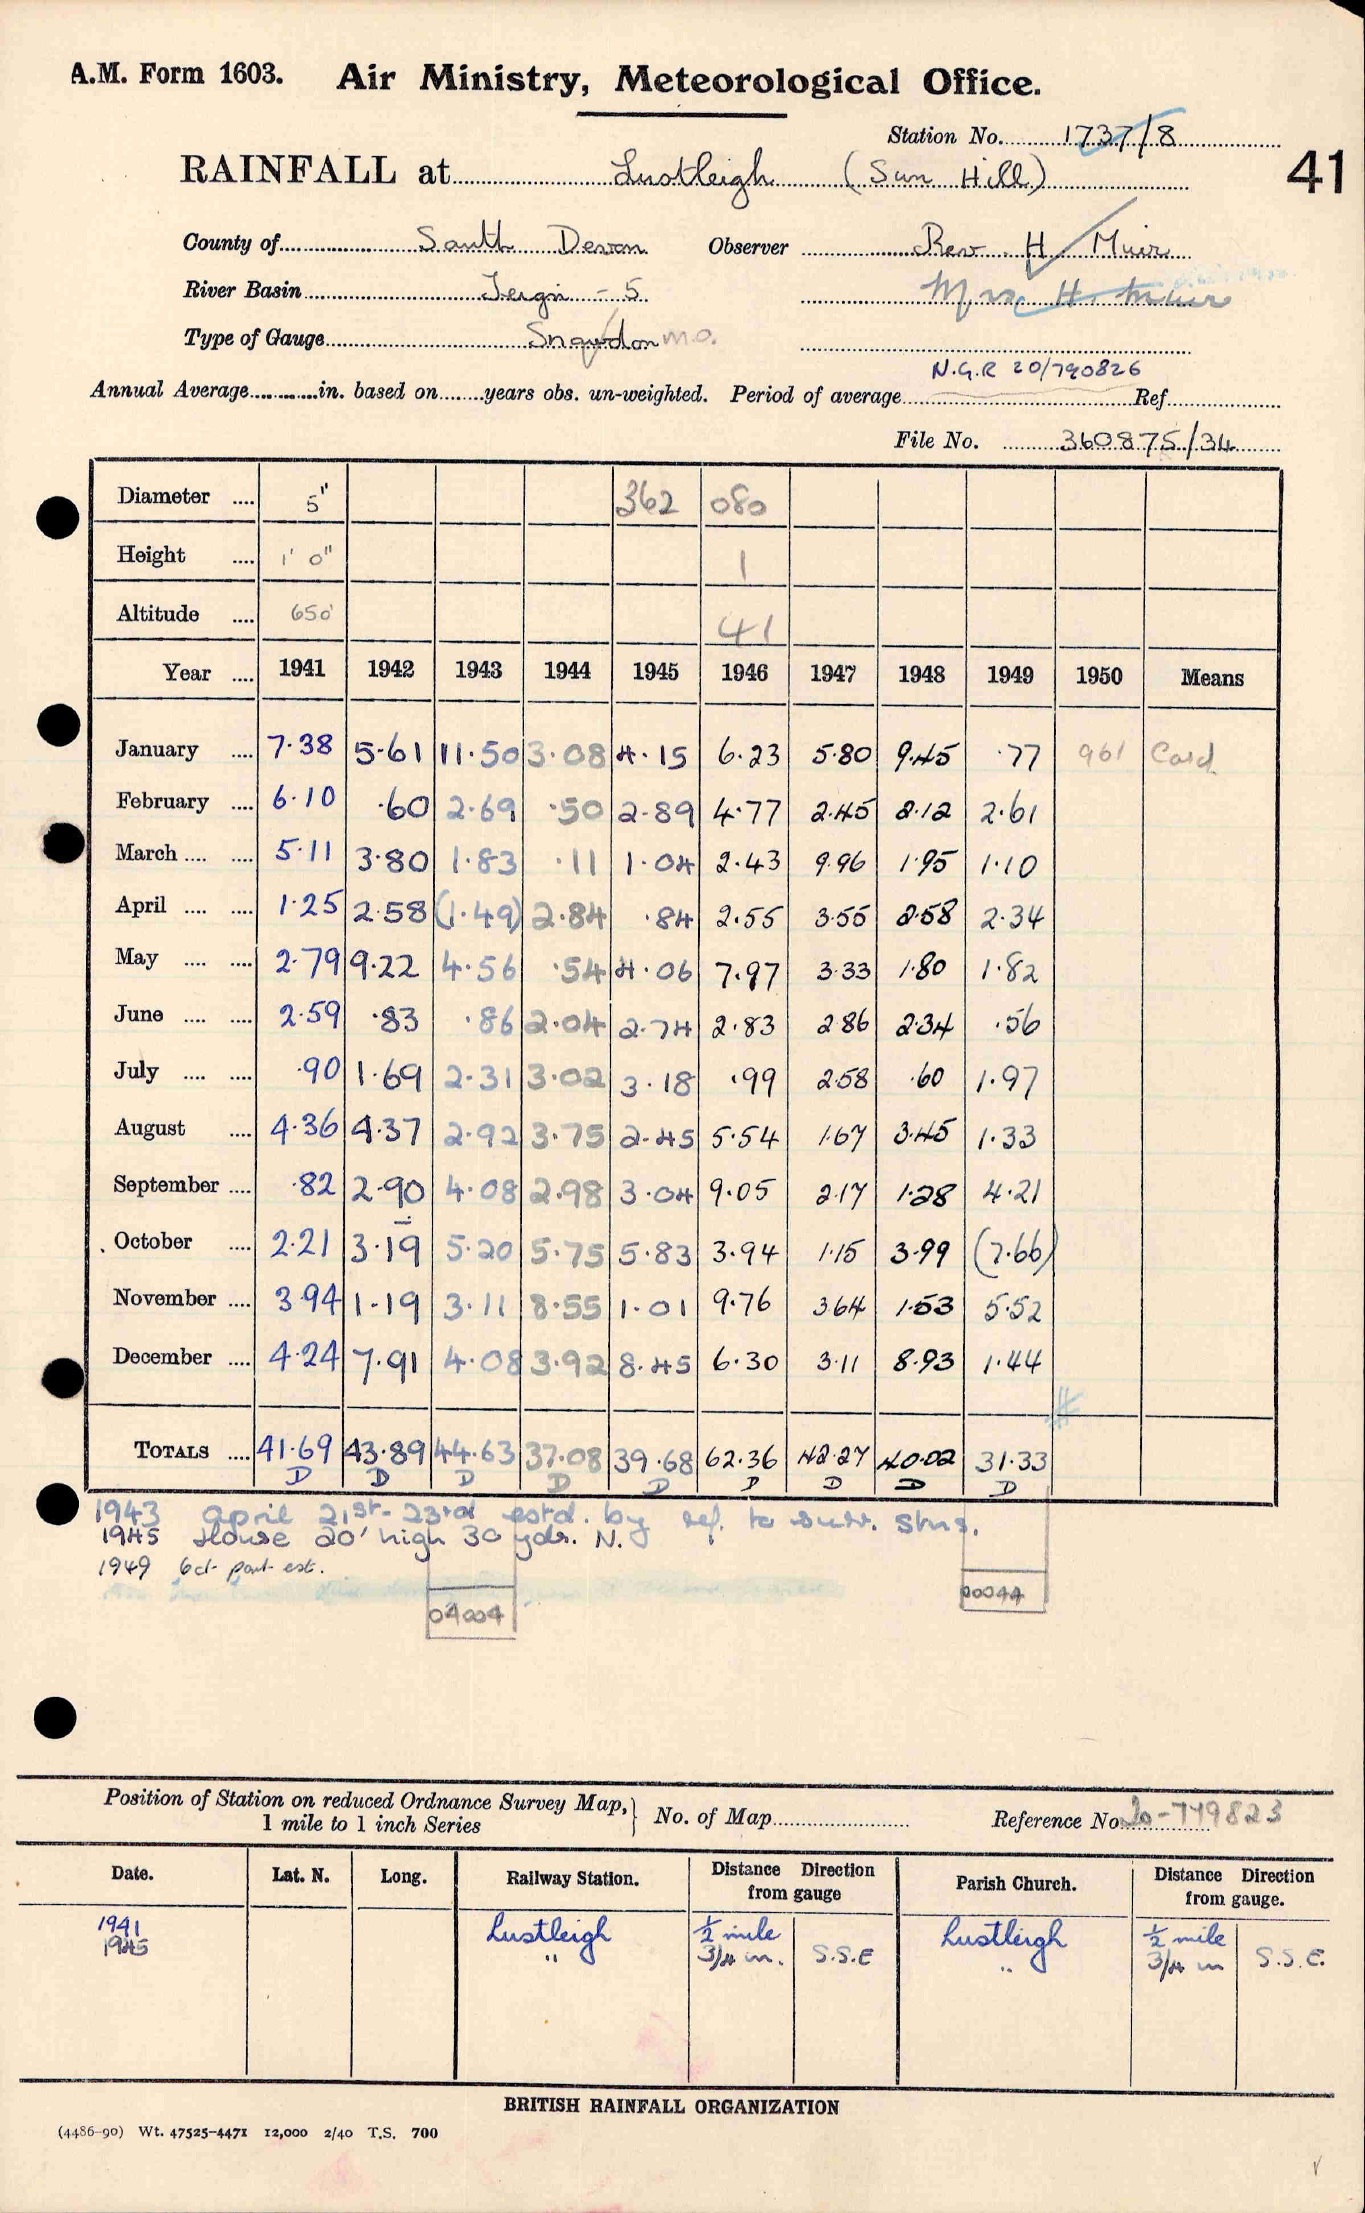 A.M. Form 1603. Air Ministry, Meteorological Office.
Station No. 1737/8
RAINFALL at Lustleigh (Sun Hill) 41
County of South Devon Observer Rev. H Muir
River Basin Teign - 5 Mrs H. Muir
Type of Gauge Snowdon M.O.
N.G.R 20/790826
Annual Average in. based on years obs. un-weighted. Period of average Ref
File No. 360875/34
Diameter 5" 362 080
Height 1' 0" 1
Altitude 650' 41
Year 1941 1942 1943 1944 1945 1946 1947 1948 1949 1950 Means
January 7.38 5.61 11.50 3.08 4.15 6.23 5.80 9.45 .77 961 Card
February 6.10 .60 2.69 .50 2.89 4.77 2.45 2.12 2.61
March 5.11 3.80 1.83 .11 1.04 2.43 9.96 1.95 1.10
April 1.25 2.58 (1.49) 2.84 .84 2.55 3.55 2.58 2.34
May 2.79 9.22 4.56 .54 4.06 7.97 3.33 1.80 1.82
June 2.59 .83 .86 2.04 2.74 2.83 2.86 2.34 .56
July .90 1.69 2.31 3.02 3.18 .99 2.58 .60 1.97
August 4.36 4.37 2.92 3.75 2.45 5.54 1.67 3.45 1.33
September .82 2.90 4.08 2.98 3.04 9.05 2.17 1.28 4.21
October 2.21 3.19 5.20 5.75 5.83 3.94 1.15 3.99 (7.66)
November 3.94 1.19 3.11 8.55 1.01 9.76 3.64 1.53 5.52
December 4.24 7.91 4.08 3.92 8.45 6.30 3.11 8.93 1.44
TOTALS 41.69 43.89 44.63 37.08 39.68 62.36 42.27 40.02 31.33
D D D D D D D D D
1943 April 21st-23rd estd. by ref. to surr. stns.
1945 House 20' high 30 yds. N.
1949 Oct part est.
04004 00044
Position of Station on reduced Ordnance Survey Map, 1 mile to 1 inch Series } No. of Map Reference No. 20-779823
Date. Lat. N. Long. Railway Station. Distance Direction from gauge Parish Church. Distance Direction from gauge.
1941 Lustleigh ½ mile Lustleigh ½ mile
1945 " 3/4 m. S.S.E " 3/4 m S.S.E.
BRITISH RAINFALL ORGANIZATION
(4486-90) Wt. 47525-4471 12,000 2/40 T.S. 700